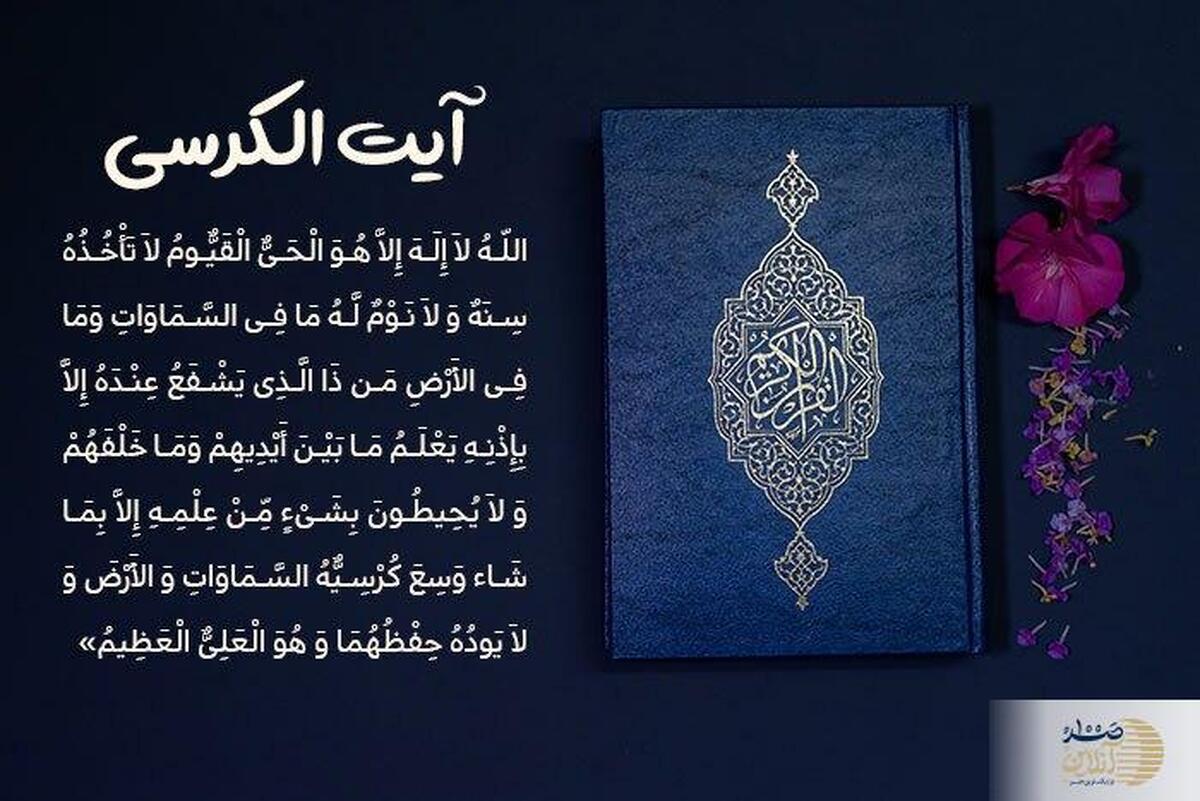 آیت الکرسی
اللّهُ لاَ إِلَهَ إِلاَّ هُوَ الْحَیُّ الْقَیُّومُ لاَ تَأْخُذُهُ
سِنَةٌ وَ لاَ نَوْمٌ لَّهُ مَا فِی السَّمَاوَاتِ وَمَا
فِی الأَرْضِ مَن ذَا الَّذِی یَشْفَعُ عِنْدَهُ إِلاَّ
بِإِذْنِهِ یَعْلَمُ مَا بَیْنَ أَیْدِیهِمْ وَمَا خَلْفَهُمْ
وَ لاَ یُحِیطُونَ بِشَیْءٍ مِّنْ عِلْمِهِ إِلاَّ بِمَا
شَاء وَسِعَ کُرْسِیُّهُ السَّمَاوَاتِ وَ الأَرْضَ وَ
لاَ یَودُهُ حِفْظُهُمَا وَ هُوَ الْعَلِیُّ الْعَظِیمُ»
القرآن الکریم
صد
آنلاین